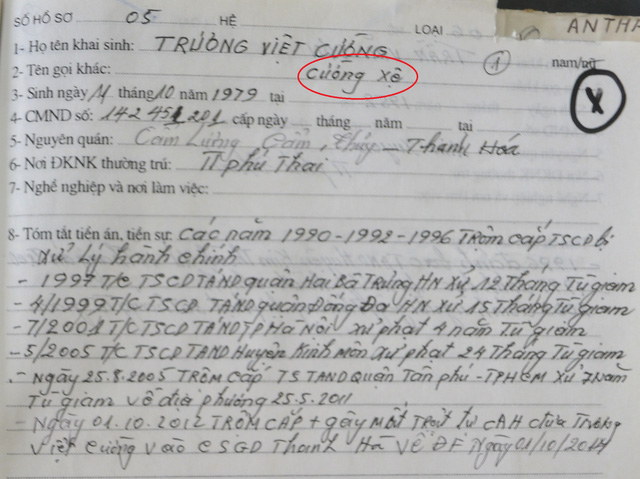 SỐ HỒ SƠ 05 HỆ LOẠI AN THA
1- Họ tên khai sinh: TRƯƠNG VIỆT CƯỜNG
2- Tên gọi khác: Cường Xệ 1 nam/nữ
3- Sinh ngày 11 tháng 10 năm 1979 tại X
4- CMND số: 142451201 cấp ngày tháng năm tại
5- Nguyên quán: Cẩm Lương Cẩm Thủy - Thanh Hoá
6- Nơi ĐKNK thường trú: TT phú Thái
7- Nghề nghiệp và nơi làm việc:
8- Tóm tắt tiền án, tiền sự: Các năm 1990-1992-1996 Trộm cắp TSCD bị
xử lý hành chính
- 1997 T/C TSCD TAND quận Hai Bà Trưng HN xử 12 Tháng Tù giam
- 4/1999 T/C TSCD TAND quận Đống Đa HN xử 15 Tháng Tù giam
- 7/2001 T/C TSCD TAND TP Hà Nội xử phạt 4 năm Tù giam
- 5/2005 T/C TSCD TAND Huyện Kinh môn xử phạt 24 Tháng Tù giam
- Ngày 25.8.2005 Trộm cắp TS TAND Quận Tân phú - TPHCM xử 7 Năm
Tù giam về địa phương 25.5.2011
- Ngày 01.10.2012 TRỘM CẮP + gây mất Trật tự CAH đưa Trương
Việt Cường vào CSGD Thanh Hà về ĐF Ngày 01/10/2014